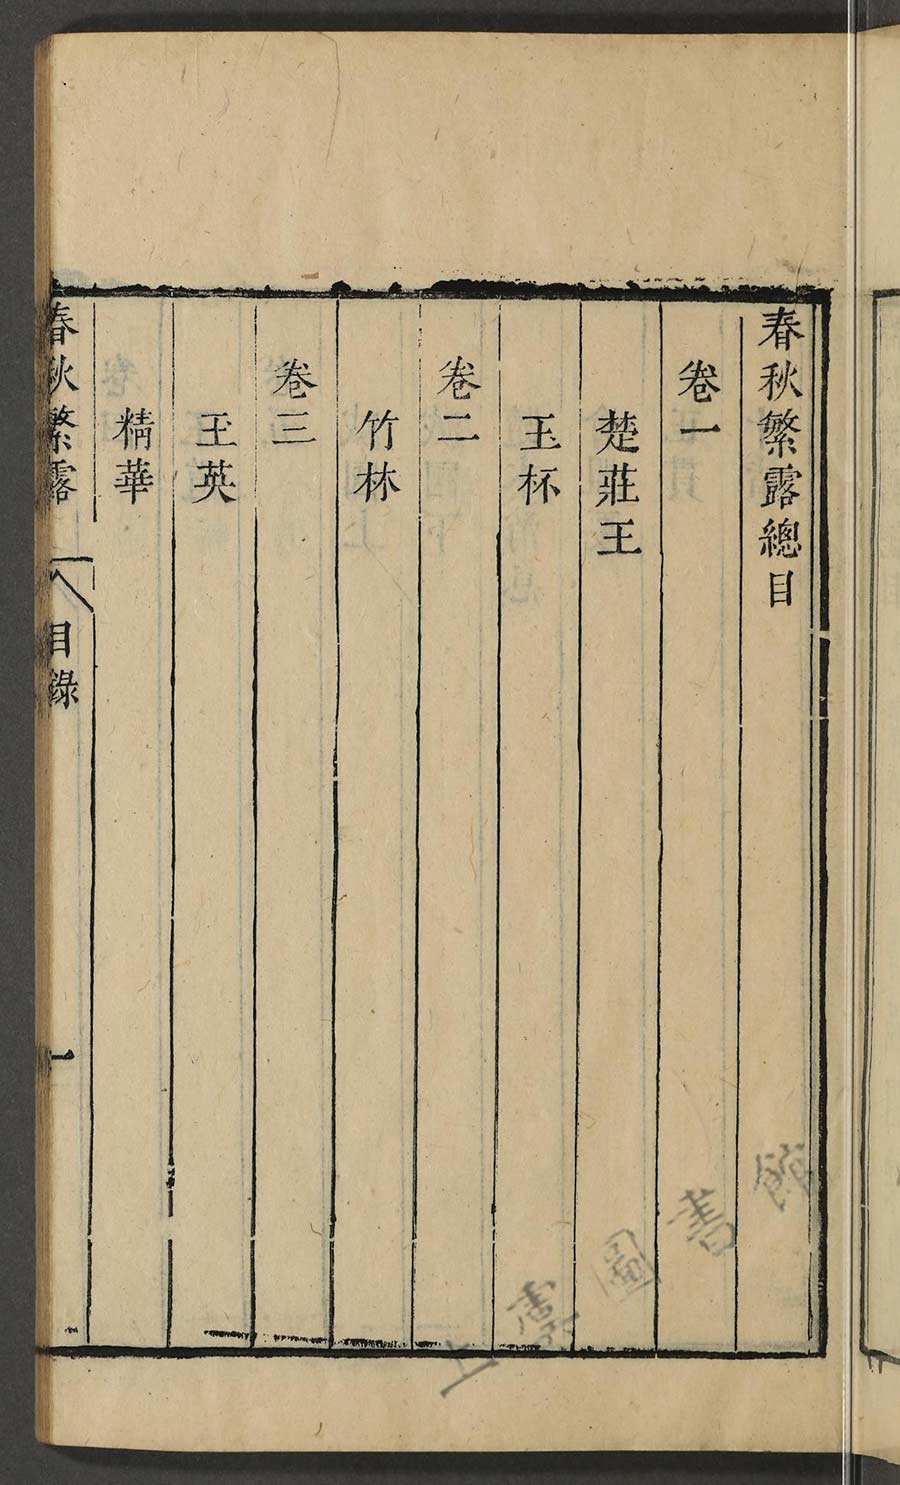 春秋繁露總目
卷一
楚莊王
玉杯
卷二
竹林
卷三
王英
精華
春秋繁露
目錄
一
上海圖書館